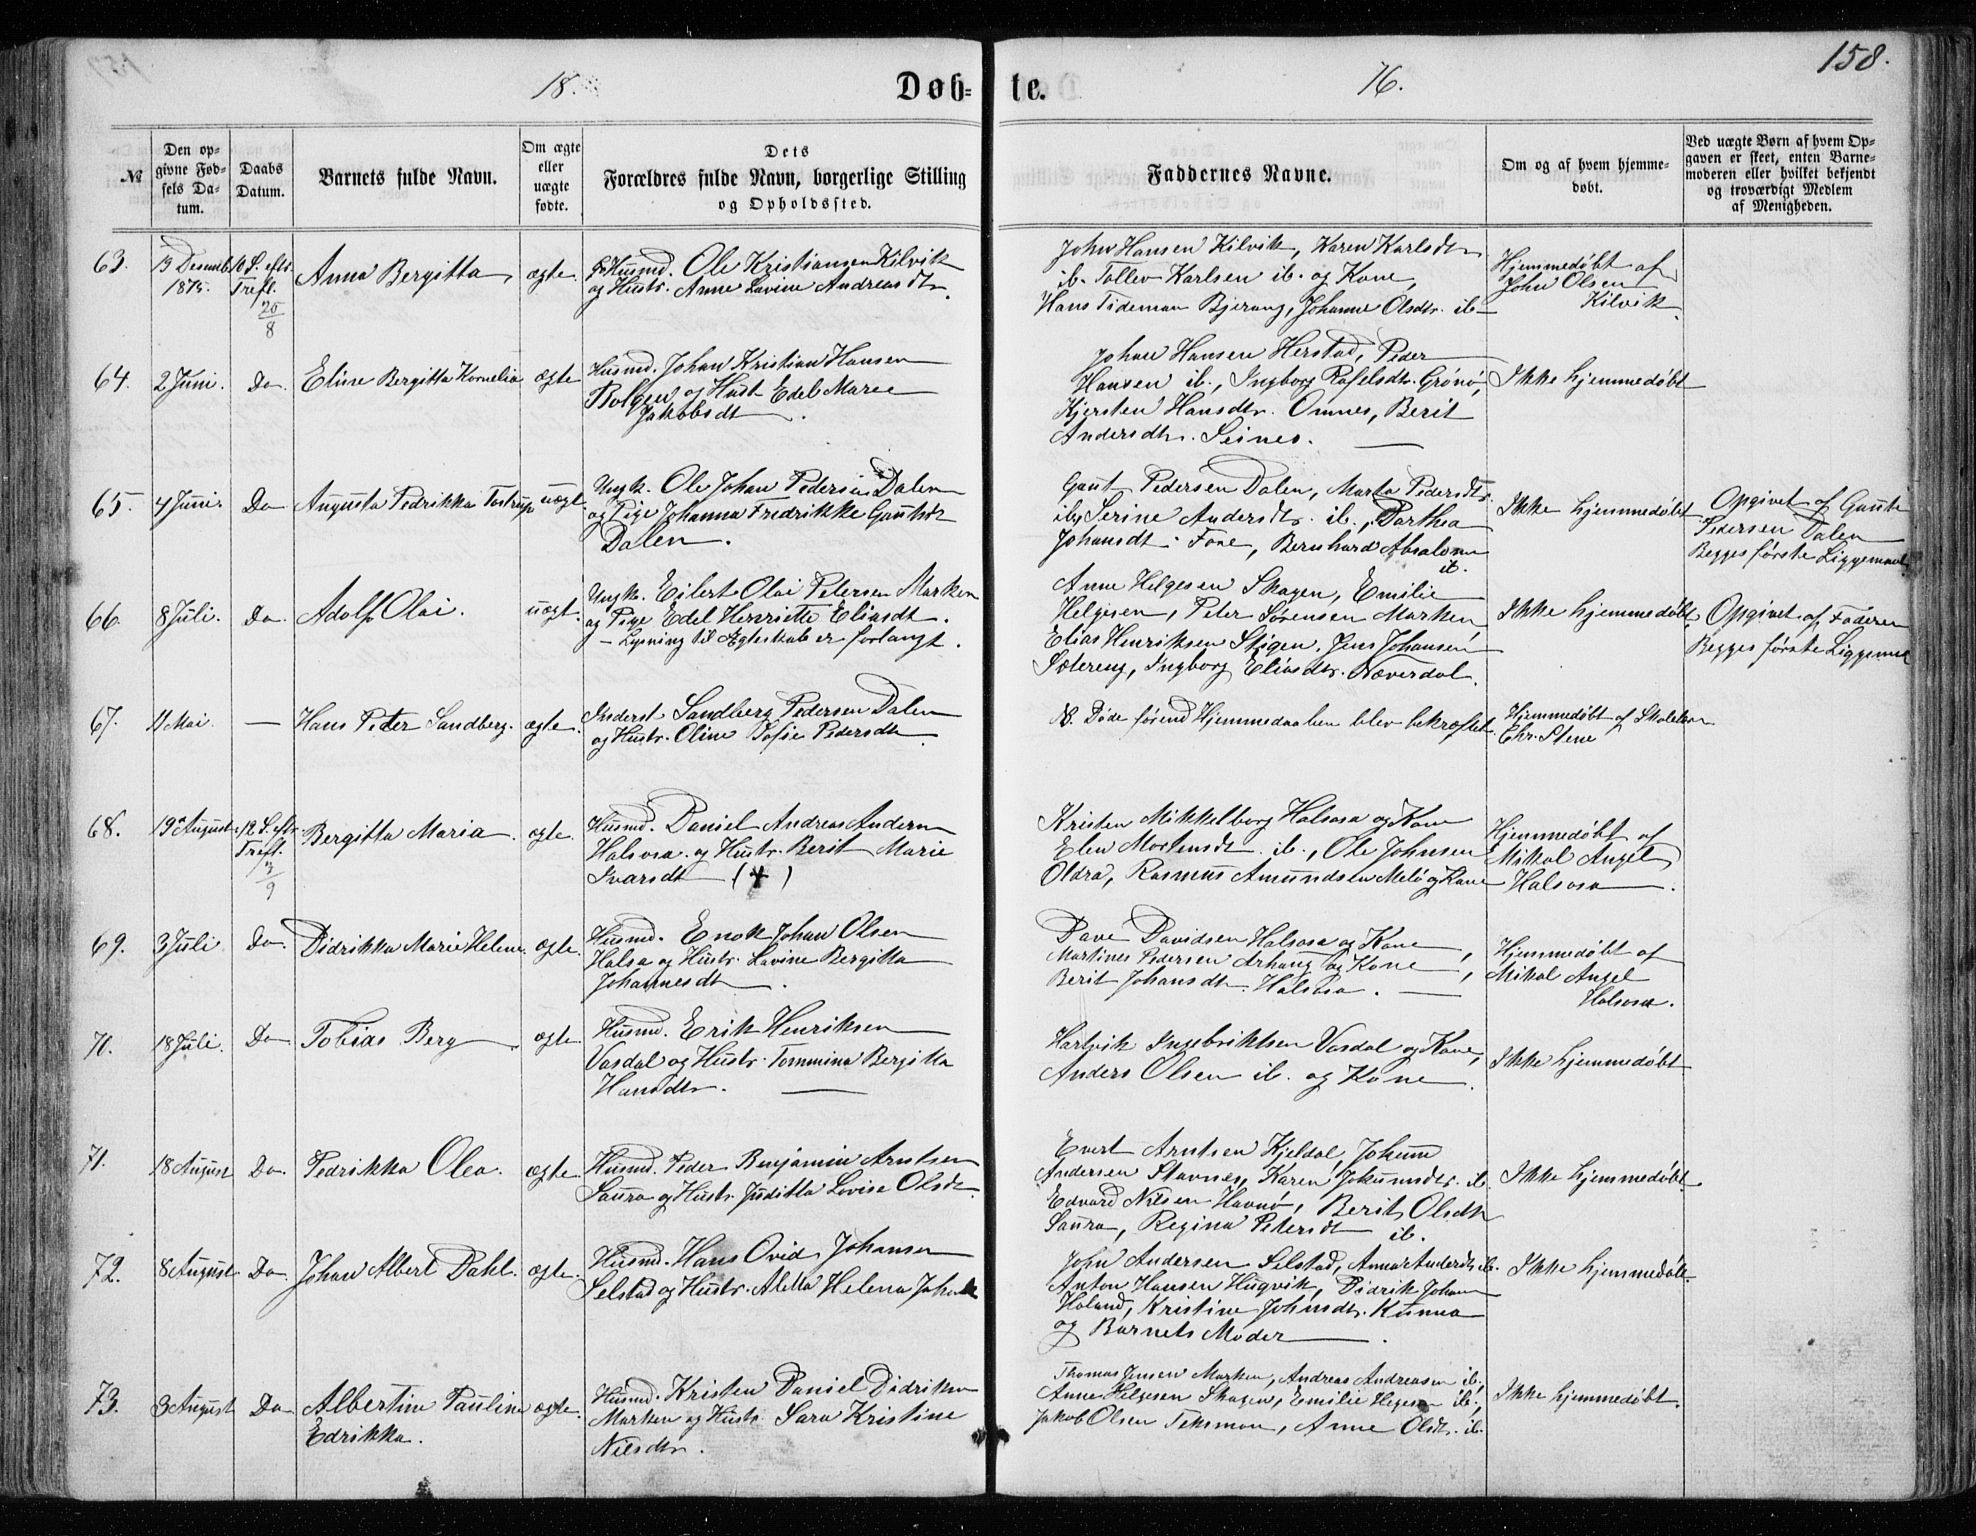 158.
18. Døb- te. 76.
№
Den op-
givne Fød-
sels Da-
tum.
Daabs
Datum.
Barnets fulde Navn.
Om ægte
eller
uægte
fødte.
Dets
Forældres fulde Navn, borgerlige Stilling
og Opholdssted.
Faddernes Navne.
Om og af hvem hjemme-
døbt.
Ved uægte Børn af hvem Op-
gaven er skeet, enten Barne-
moderen eller hvilket bekjendt
og troværdigt Medlem
af Menigheden.
63.
13 Desemb.
1875.
10 S. eft.
Tref.
20/8
Anna Bergitta
ægte.
Husmd. Ole Kristiansen Kilvik
og Hustr. Anne Lavine Andreasdtr.
John Hansen Kilvik, Karen Karlsdtr
ib. Tollev Karlsen ib. og Kone,
Hans Tideman Bjerang, Johanne Olsdtr. ib
Hjemmedøbt af
John Olsen
Kilvik.
64.
2 Juni.
Do
Eline Bergitta Kornelia
ægte
Husmd. Johan Kristian Hansen
Bolgen og Hust Edel Marie
Jakobsdt.
Johan Hansen Herstad, Peder
Hansen ib., Ingborg Rafelsdtr. Grønø,
Kjersten Hansdtr. Omnes, Berit
Andersdtr. Seines.
Ikke hjemmedøbt
65.
4 Juni.
Do
Augusta Pedrikka Tostrup
uægt.
Ungk. Ole Johan Pedersen Dalen
og Pige Johanna Fredrikke Gautsdtr
Dalen.
Gaut Pedersen Dalen, Marta Pedersdtr.
ib, Serine Andersdtr. ib., Dorthea
Johansdt. Fore, Bernhard Absalomn
ib.
Ikke hjemmedøbt
Opgivet af Gaute
Pedersen Dalen
Begges første Liggemaal.
66.
8 Juli.
Do
Adolf Olai.
uægt.
Ungk. Eilert Olai Petersen Marken
og Pige Edel Henriette Eliasdt.
– Lysning til Ægteskab er forlangt.
Anne Helgesen Skagen, Emilie
Helgesen, Peter Sørensen Marken,
Elias Henriksen Stigen, Jens Johansen
Sætereng, Ingborg Eliasdtr. Næverdal.
Ikke hjemmedøbt
Opgivet af Faderen
Begges første Liggemaal
67.
11 Mai
—
Hans Peter Sandberg.
ægte.
Inderst Sandberg Pedersen Dalen
og Hustr. Oline Sofie Pedersdtr
NB. Døde førend Hjemmedaaben blev bekræftet.
Hjemmedøbt af Skoleleser
Chr. Stene
68.
19 August
12 S. eft.
Tref.
3/9
Bergitta Maria.
ægte.
Husmd. Daniel Andreas Andersn
Halsosa og Hustr. Berit Marie
Ivarsdt (+)
Kristen Mikkelborg Halsosa og Kone
Elen Mortensdt. ib., Ole Johnsen
Oldra, Rasmus Amundsen Melø og Kone
Hjemmedøbt af
Mikal Angel
Halsosa
69.
3 Juli
Do.
Didrikka Marie Helene.
ægte.
Husmd. Enok Johan Olsen
Halsa og Hustr. Lavine Bergitta
Johannesdt.
Dave Davidsen Halsosa og Kone,
Martines Pedersen Arhaug og Kone,
Berit Johansdt. Halsosa.
Hjemmedøbt af
Mikal Angel
Halsosa.
70.
18 Juli.
Do
Tobias Berg
ægte
Husmd. Erik Henriksen
Vasdal og Hustr. Tommina Bergitta
Hansdtr.
Hartvik Ingebriktsen Vasdal og Kone,
Anders Olsen ib. og Kone.
Ikke hjemmedøbt
71.
18 August
Do.
Pedrikka Olea.
ægte.
Husmd. Peder Benjamin Arntsen
Saura og Hustr. Juditta Lovise Olsdt.
Evert Arntsen Kjeldal, Johan
Andersen Stavnes, Karen Jokumsdtr. ib.
Edvard Nilsen Havnø, Berit Olsdtr
Saura, Regina Petersdt ib.
Ikke hjemmedøbt.
72.
8 August
Do.
Johan Albert Dahl.
ægte.
Husmd. Hans Ovid Johansen
Selstad og Hustr. Aletta Helena Johnsdt
John Andersen Selstad, Anna Andersdt ib.
Anton Hansen Hugvik, Didrik Johan
Haland, Kristine Johnsdtr. Kunna
og Barnets Moder.
Ikke hjemmedøbt.
73.
3 August
Do
Albertine Pauline
Edrikka.
ægte.
Husmd. Kristen Daniel Didriksen
Marken og Hustr. Sara Kristine
Nilsdtr.
Thomas Jensen Marken, Andreas Andreasen ib,
Anne Helgesen Skagen, Emilie Hegesen ib.,
Jakob Olsen Teksmon, Anne Olsdtr. ib.
Ikke hjemmedøbt.